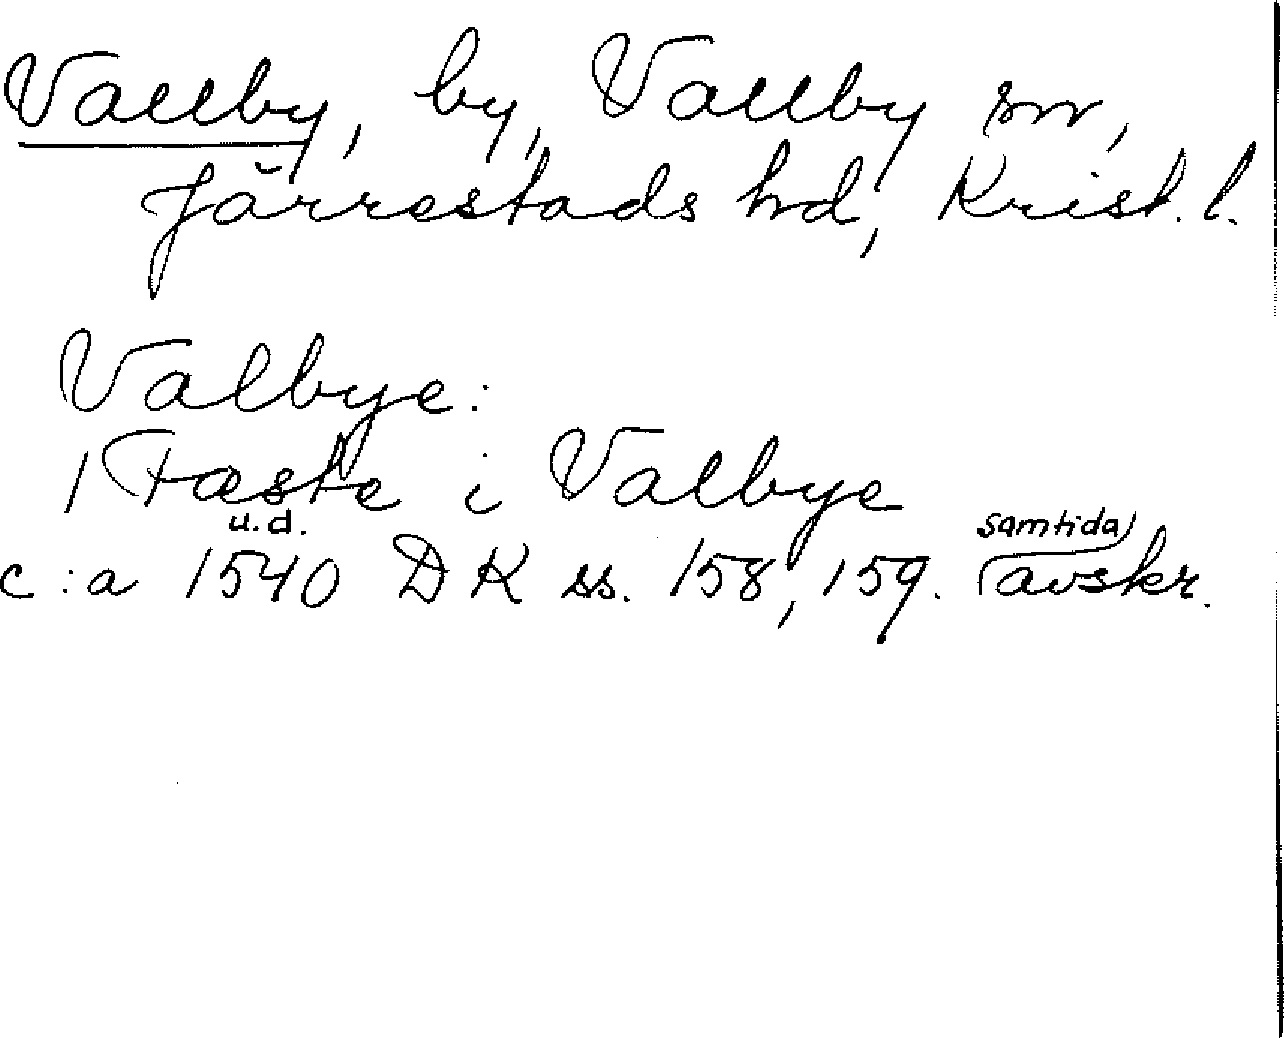 Vallby, by, Vallby sn,
Järrestads hd, Krist. l.
Valbye:
1 Fæste i Valbye
u.d. samtida
c:a 1540 DK ss. 158, 159. avskr.